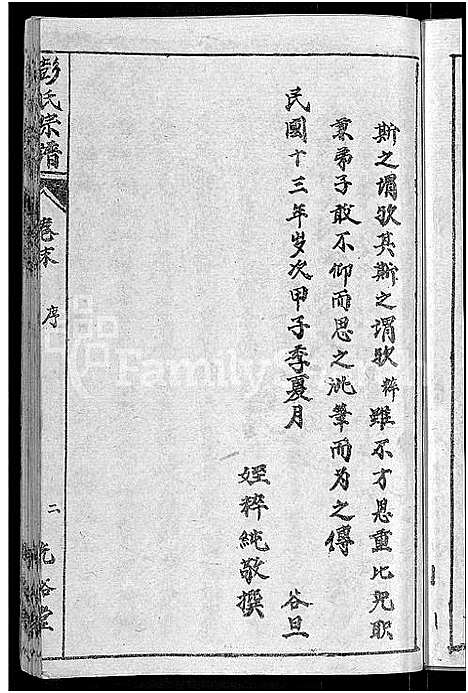 斯之謂歟其斯之謂歟粹雖不才恩重比兒職
兼弟子敢不仰而思之泚筆而为之傳
民國十三年岁次甲子季夏月 谷旦
姪粹純敬撰
彭氏宗譜 卷末 序 二 光裕堂
Family